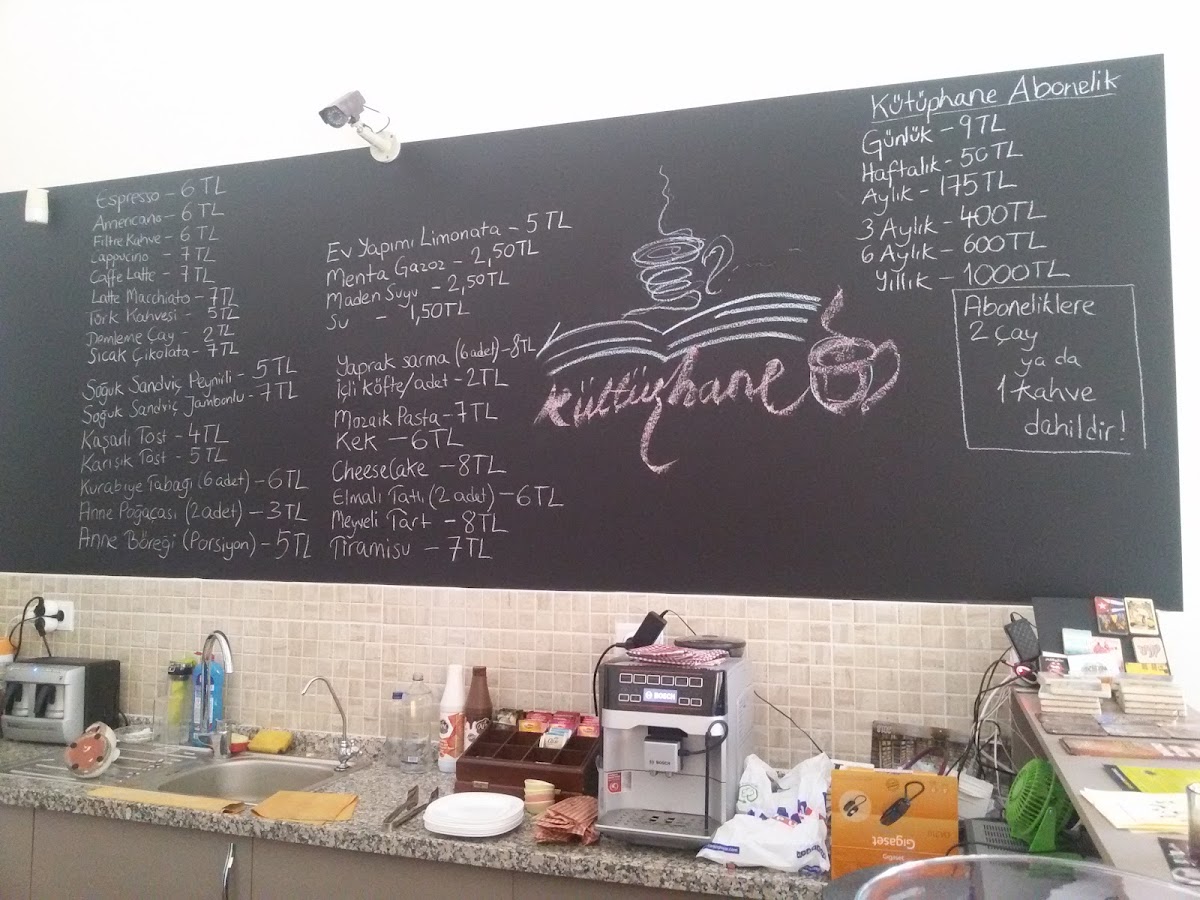 Espresso - 6 TL
Americano - 6 TL
Filtre Kahve - 6 TL
Cappucino - 7 TL
Caffe Latte - 7 TL
Latte Macchiato - 7 TL
Türk Kahvesi - 5TL
Demleme Çay - 2 TL
Sıcak Çikolata - 7 TL
Soğuk Sandviç Peynirli - 5 TL
Soğuk Sandviç Jambonlu - 7 TL
Kaşarlı Tost - 4 TL
Karışık Tost - 5 TL
Kurabiye Tabağı (6 adet) - 6 TL
Anne Poğaçası (2 adet) - 3 TL
Anne Böreği (Porsiyon) - 5 TL
Ev Yapımı Limonata - 5 TL
Menta Gazoz - 2,50TL
Maden Suyu - 2,50TL
Su - 1,50TL
Yaprak sarma (6 adet) - 8TL
İçli köfte/adet - 2TL
Mozaik Pasta - 7 TL
Kek - 6 TL
CheeseCake - 8TL
Elmalı Tatlı (2 adet) - 6 TL
Meyveli Tart - 8TL
Tiramisu - 7 TL
kütüphane
Kütüphane Abonelik
Günlük - 9TL
Haftalık - 50TL
Aylık - 175TL
3 Aylık - 400TL
6 Aylık - 600TL
Yıllık - 1000TL
Aboneliklere
2 çay
ya da
1 kahve
dahildir!
BOSCH
BOSCH
Gigaset